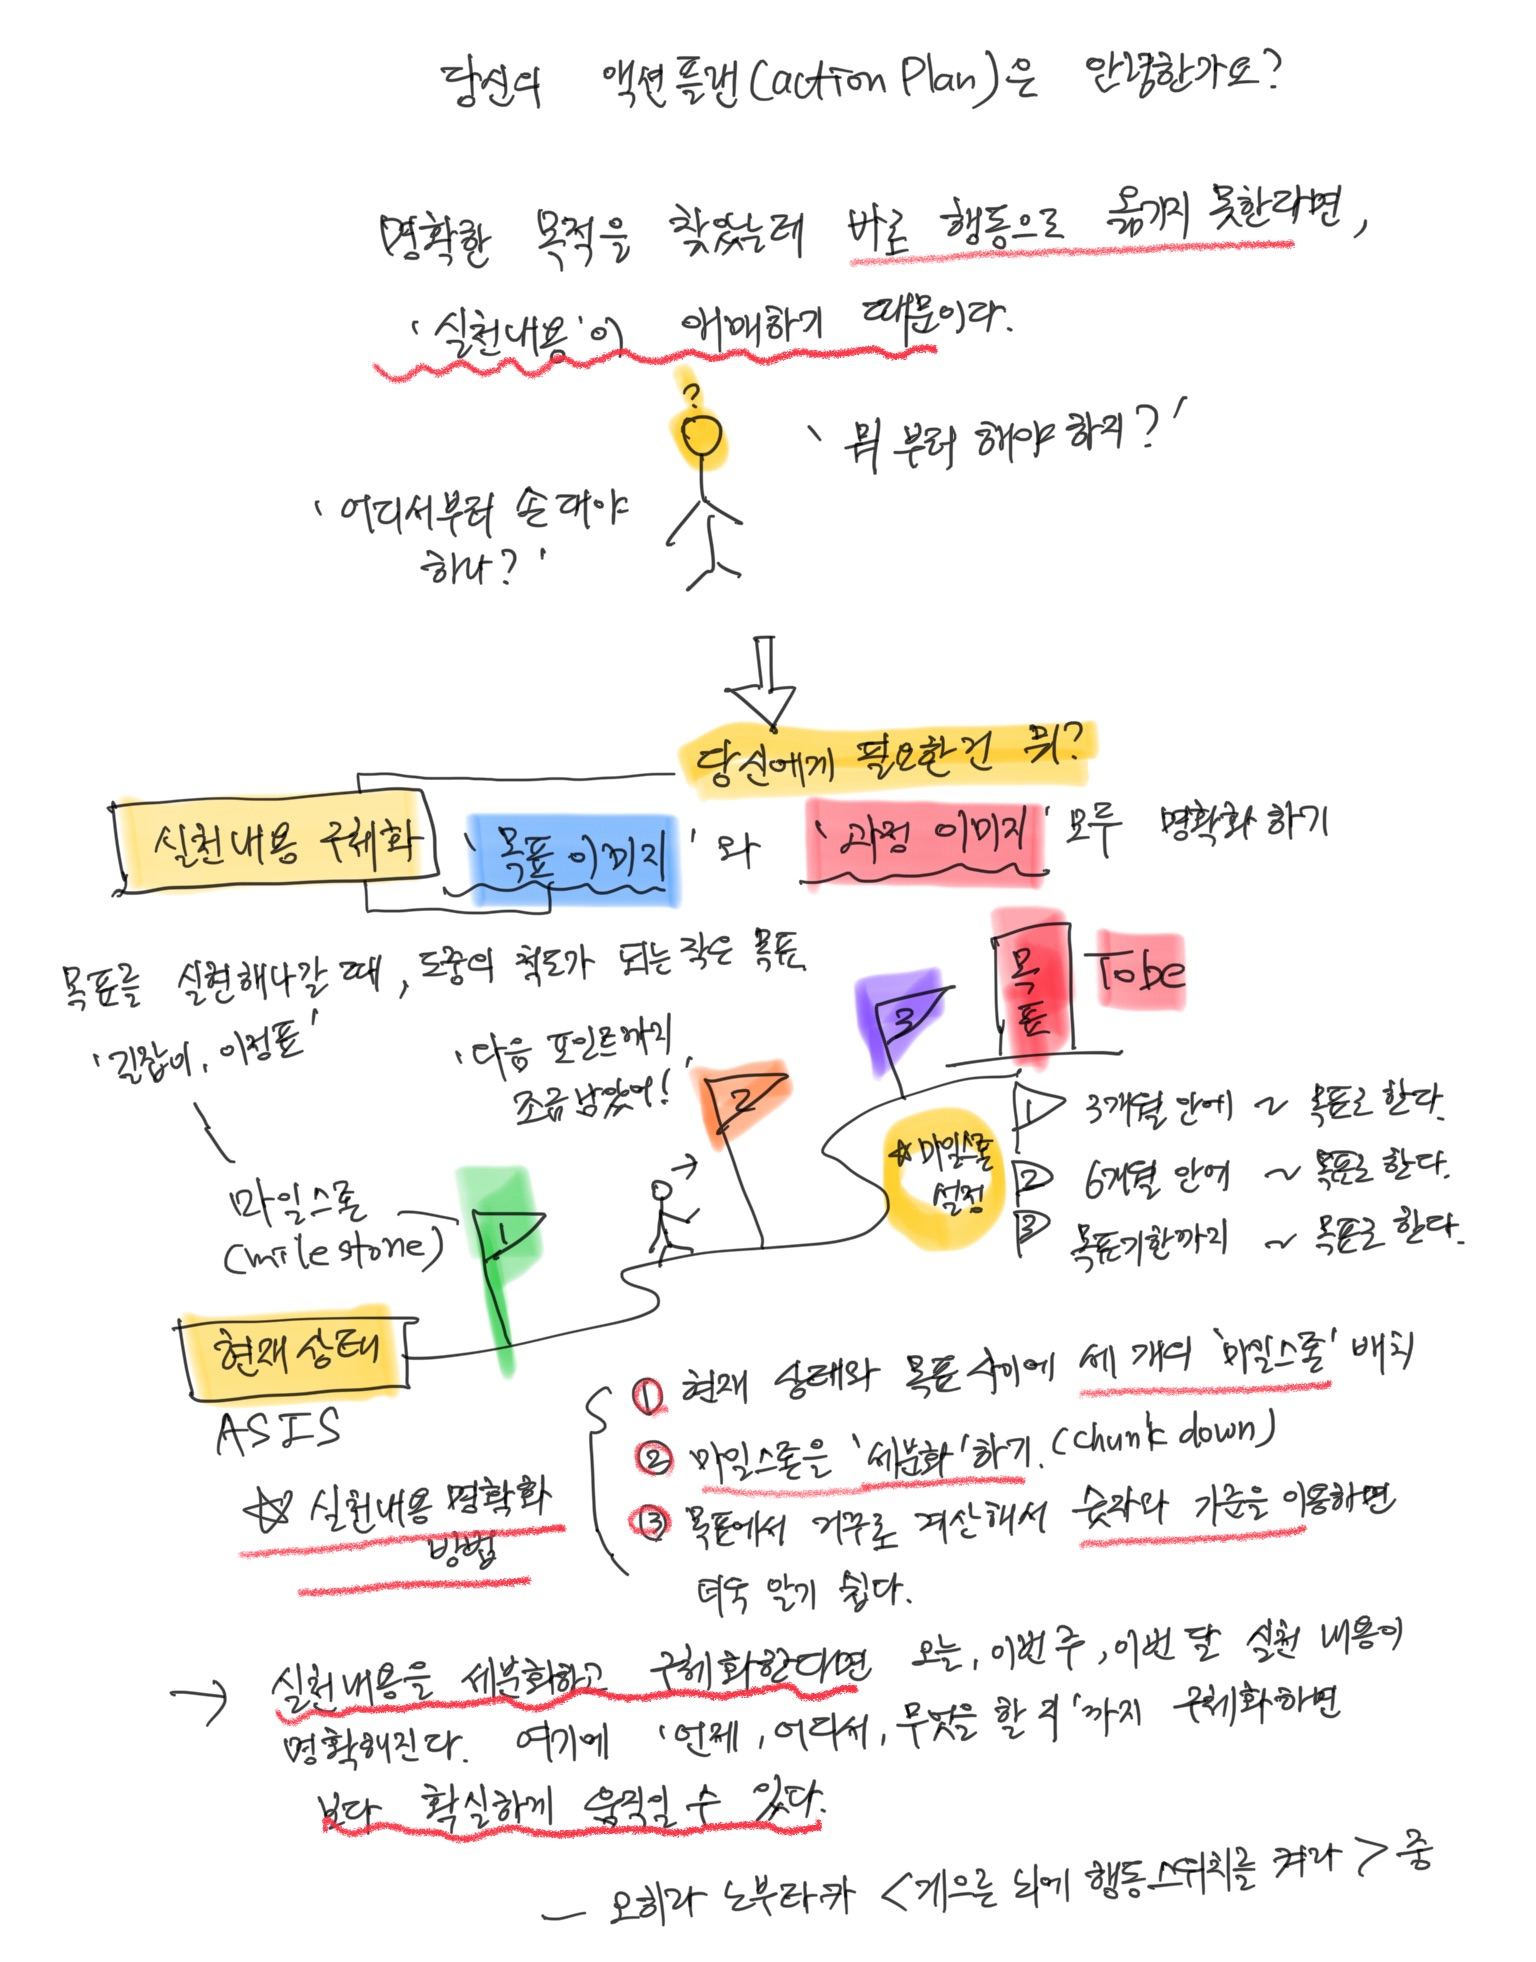 당신의 액션플랜(action Plan)은 안녕한가요?
명확한 목적을 찾았는데 바로 행동으로 옮기지 못한다면,
'실천내용'이 애매하기 때문이다.
?
'뭐부터 해야 하지?'
'어디서부터 손 대야
하나?'
당신에게 필요한건 뭐?
실천내용 구체화 '목표 이미지'와 '과정 이미지' 모두 명확화 하기
목표를 실현해나갈 때, 도중의 척도가 되는 작은 목표
'길잡이, 이정표'
'다음 포인트까지
조금 남았어!'
3
목표
Tobe
2
마일스톤
(milestone)
1
☆마일스톤
설정
1 3개월 안에 ~ 목표로 한다.
2 6개월 안에 ~ 목표로 한다.
3 목표기한까지 ~ 목표로 한다.
현재 상태
ASIS
☆ 실천내용 명확화
방법
① 현재 상태와 목표 사이에 세 개의 '마일스톤' 배치
② 마일스톤을 '세분화'하기. (chunk down)
③ 목표에서 거꾸로 계산해서 숫자와 기준을 이용하면
더욱 알기 쉽다.
→ 실천내용을 세분화하고 구체화한다면 오늘, 이번 주, 이번 달 실천 내용이
명확해진다. 여기에 '언제, 어디서, 무엇을 할 지'까지 구체화하면
보다 확실하게 움직일 수 있다.
- 오히라 노부타카 <게으른 뇌에 행동스위치를 켜라> 중